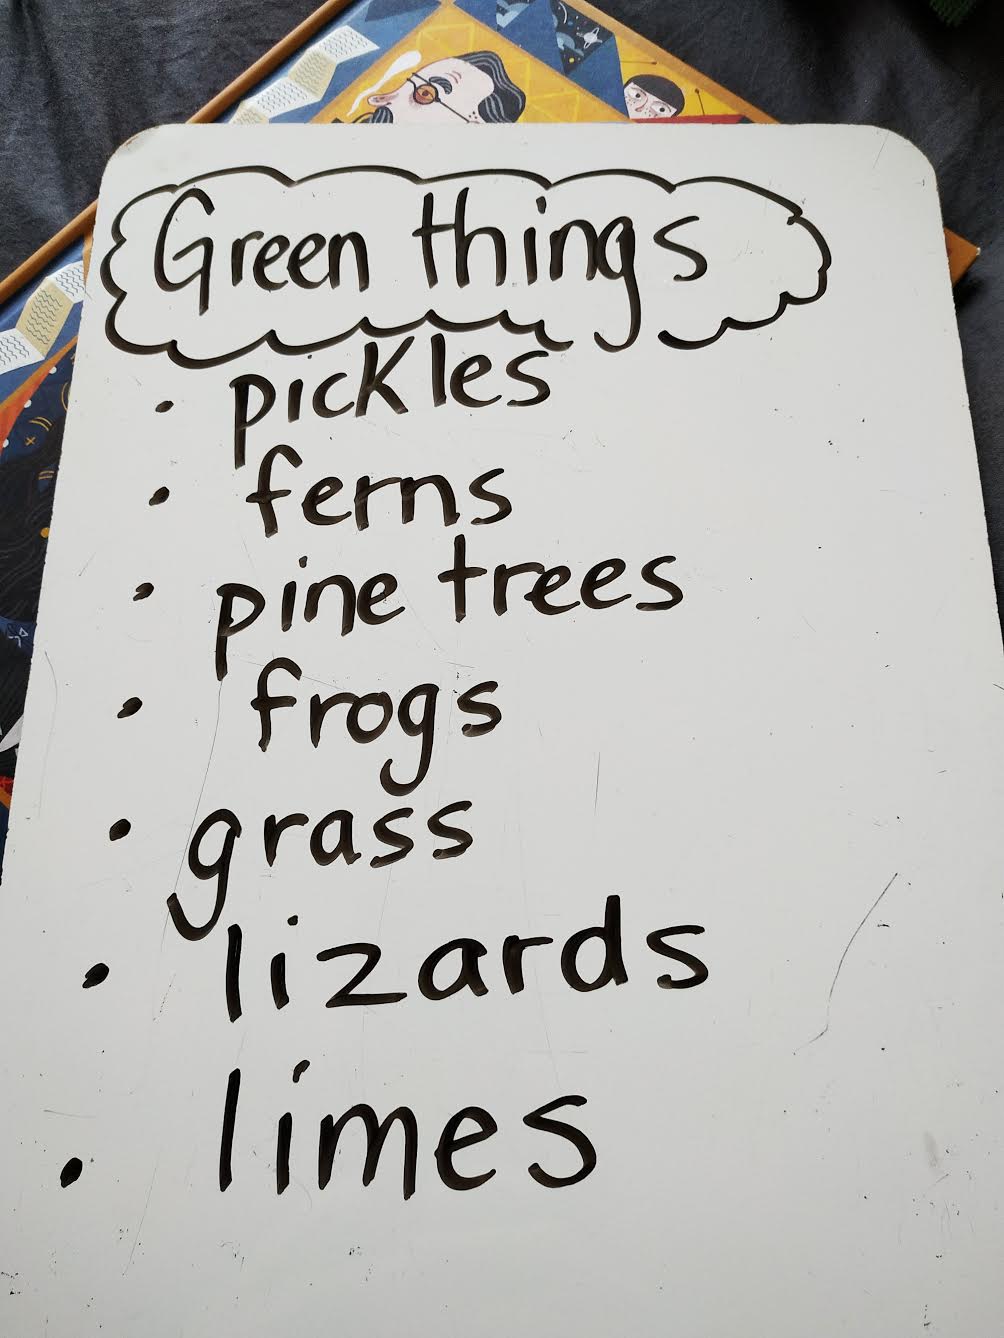 Green things
• pickles
• ferns
• pine trees
• frogs
• grass
• lizards
• limes